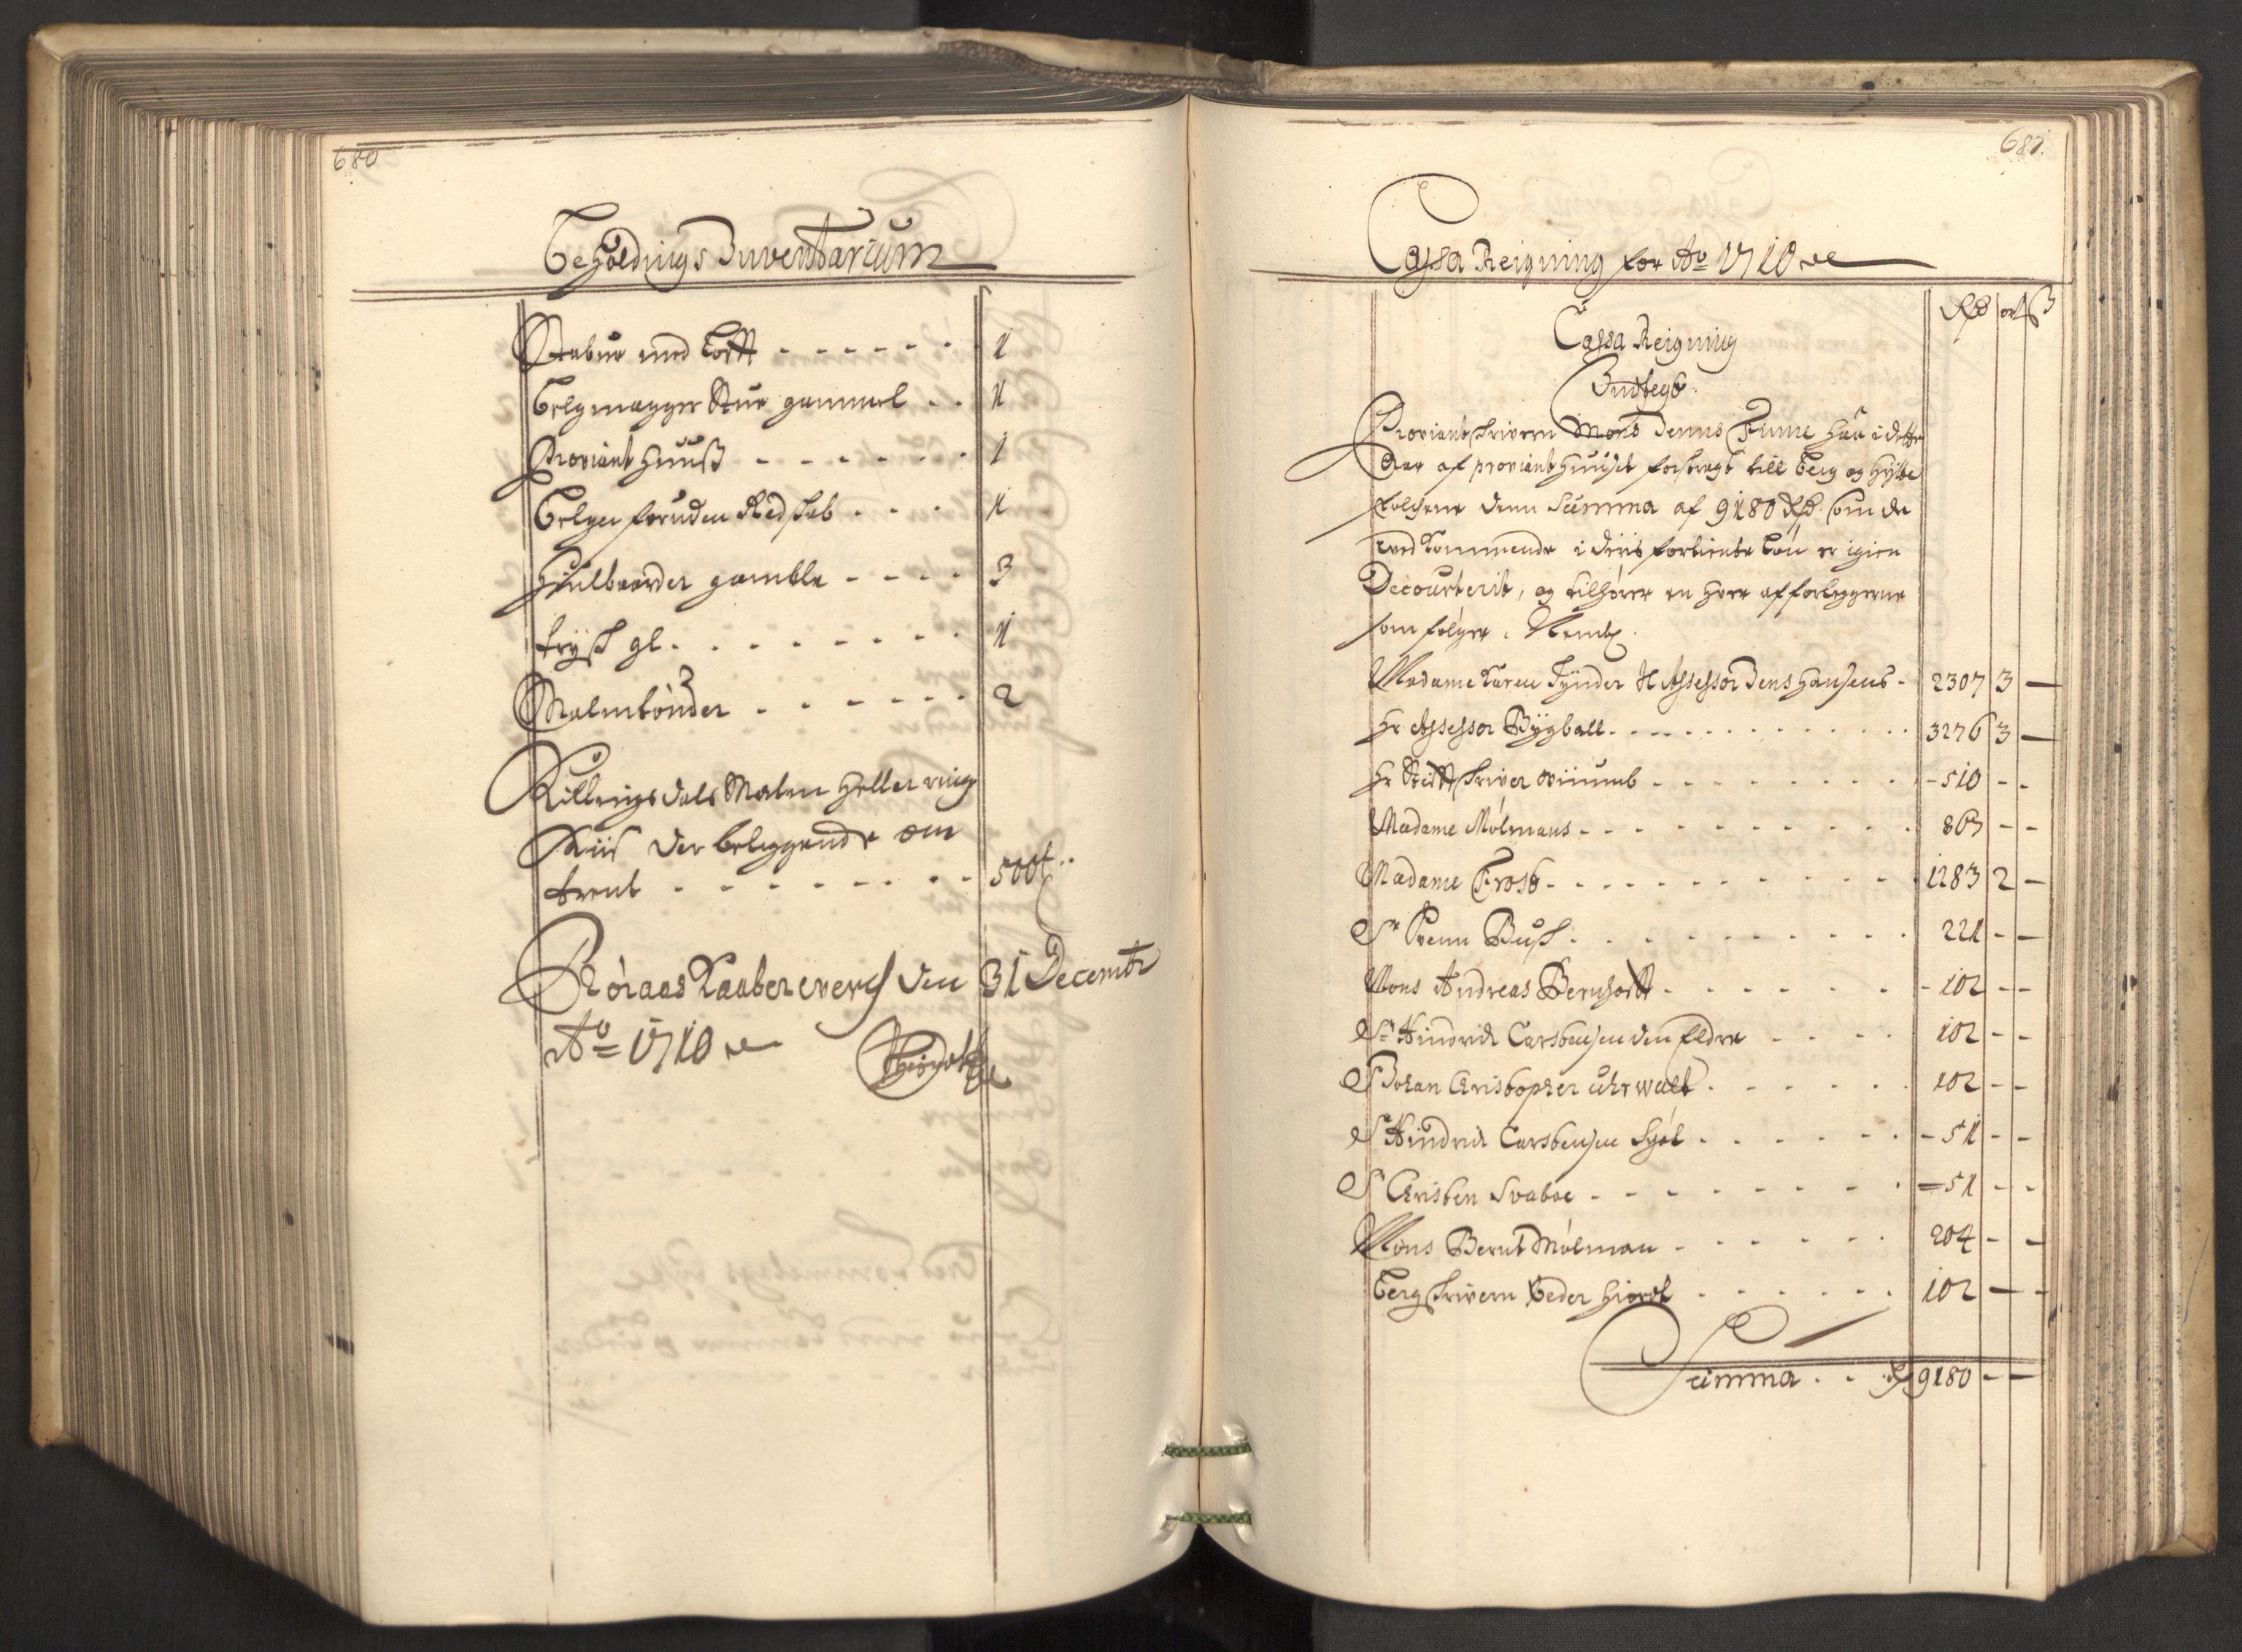 680
Beholdnings Inventarium
Stabur med Loftt - - - - - - 1
Belgmager Stue gammel - - 1
Proviant Huuss - - - - - - 1
Belger foruden Redskab - - - 1
Hiulbaarder gamble - - - - 3
Trysk gl. - - - - - - - 1
Malmtönder - - - - - - 2
Killingdals Malm heller
Kiis der beliggende om
trent - - - - - - - - 500
Röraas Kaaberverch den 31 Decembr
Ao 1710
681.
Cassa Reigning for Ao 1710
Rdr ort ß
Cassa Reigning
Indtegt
Proviantskrivern Mons Jenns Finne har i dette
Aar af proviant huuset forstragt till Berg og Hytte
folchene denn Summa af 9180 Rdr som de
vedkommende i deris fortiente Lön er igien
Decourterit, og tilhörer en hver af forleggerne
som fölger. Neml.
Madame Karen Tÿnder Sl Assessor Jens Hansens - 2307 3 -
Hr Assessor Bÿgball - - - - - 3276 3 -
Hr Stifttskriver - - - - - 510 - -
Madame Mölmans - - - - - 867 - -
Madame Frost - - - - - 1283 2 -
Sr Svenn Busk - - - - - 221 - -
Mons Andreas Bernhoftt - - - - - 102 - -
Sr Hindrich Carstensen den Eldre - - - - 102 - -
Sr Johan Christopher Uhrwalt - - - - - 102 - -
Sr Hindrich Carstensen - - - - - 51 - -
Sr Christen Svaboe - - - - - 51 - -
Mons Bernt Mölman - - - - - 204 - -
Bergskrivern Peder Hiort - - - - - 102 - -
Summa - - Rdr 9180 - -